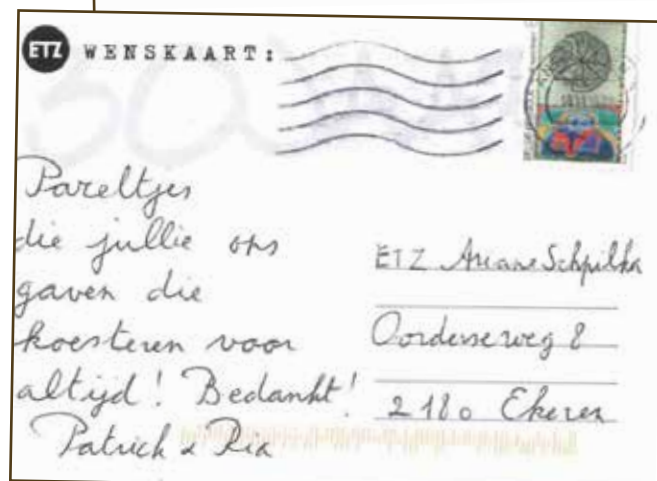 ETZ WENSKAART:
Pareltjes
die jullie ons
gaven die
koesteren voor
altijd! Bedankt!
Patrick & Ria
ETZ Ariane Schpilka
Oorderseweg 8
2180 Ekeren